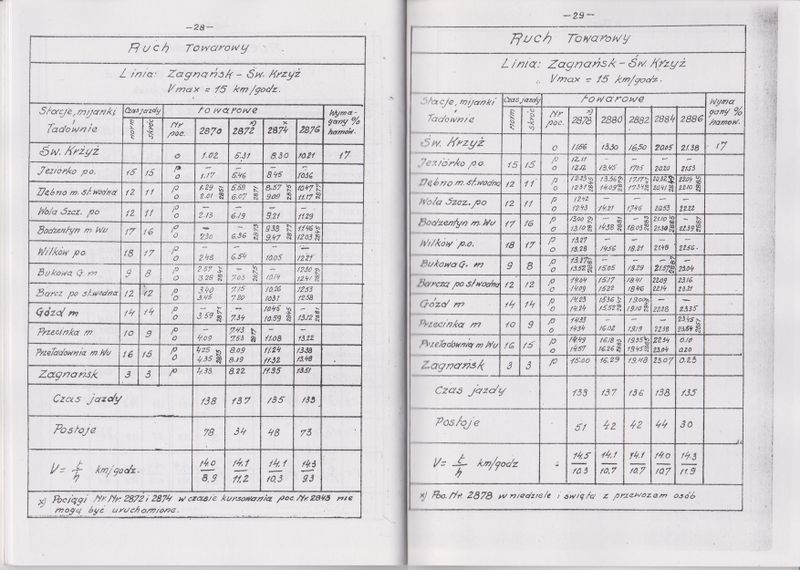 -28-
Ruch Towarowy
Linia: Zagnańsk - Św. Krzyż
Vmax = 15 km/godz.
Stacje, mijanki i Ładownie
Czas jazdy
norm
skróc
Nr poc.
Towarowe
2870 2872 x) 2874 x 2876
Wymagany % hamow.
Św. Krzyż o 1.02 5.31 8.30 10.21 17
Jeziorko p.o. 15 15 p — — — —
o 1.17 5.46 8.45 10.36
Dębno m. st. wodna 12 11 p 1.29 5.58 8.57 10.47
o 2.01 6.07 9.09 11.17
Wola Szcz. po 12 11 p — — — —
o 2.13 6.19 9.21 11.29
Bodzentyn m Wu 17 16 p — — 9.38 11.46
o 2.30 6.36 9.47 12.03
Wilków p.o. 18 17 p — — — —
o 2.48 6.54 10.05 12.21
Bukowa G. m 9 8 p 2.57 — — 12.30
o 3.28 7.03 10.14 12.41
Barcz po st. wodna 12 12 p 3.40 7.15 10.26 12.53
o 3.45 7.20 10.31 12.58
Gózd m 14 14 p — — 10.45 —
o 3.59 7.34 10.59 13.12
Przecinka m 10 9 p — 7.43 — —
o 4.09 7.53 11.08 13.22
Przeładownia m Wu 16 15 p 4.25 8.09 11.24 13.38
o 4.35 8.19 11.32 13.48
Zagnańsk 3 3 p 4.38 8.22 11.35 13.51
Czas jazdy 138 137 135 133
Postoje 78 34 48 73
V = t/h km/godz. 14.0 14.1 14.1 14.3
8,9 11.2 10,3 9.3
x) Pociągi Nr. Nr 2872 i 2874 w czasie kursowania poc. Nr 2843 nie
mogą być uruchomione.
-29-
Ruch Towarowy
Linia: Zagnańsk - Św. Krzyż
Vmax = 15 km/godz.
Stacje, mijanki i Ładownie
Czas jazdy
norm
skróc
Nr poc.
Towarowe
2878 x) 2880 2882 2884 2886
Wymagany % hamow.
Św. Krzyż o 11.56 13.30 16.50 20.05 21.38 17
Jeziorko po. 15 15 p 12.11 — — — —
o 12.11 13.45 17.05 20.20 21.53
Dębno m. st. wodna 12 11 p 12.23 13.56 17.17 20.32 22.04
o 12.31 14.09 17.34 20.41 22.10
Wola Szcz. po 12 11 p 12.42 — — — —
o 12.43 14.21 17.46 20.53 22.22
Bodzentyn m Wu 17 16 p 13.00 — — 21.10 —
o 13.10 14.38 18.03 21.30 22.39
Wilków p.o. 18 17 p 13.27 — — — —
o 13.28 14.56 18.21 21.48 22.56
Bukowa G. m 9 8 p 13.37 — — — —
o 13.52 15.05 18.29 21.57 23.04
Barcza po st wodna 12 12 p 14.04 15.17 18.41 22.09 23.16
o 14.09 15.22 18.46 22.14 23.21
Gózd m 14 14 p 14.23 15.36 19.00 — —
o 14.24 15.52 19.10 22.28 23.35
Przecinka m 10 9 p 14.33 — — — 23.45
o 14.34 16.02 19.19 22.38 23.54
Przeładownia m Wu 16 15 p 14.49 16.18 19.35 22.54 0.10
o 14.57 16.26 19.45 23.04 0.20
Zagnańsk 3 3 p 15.00 16.29 19.48 23.07 0.23
Czas jazdy 133 137 136 138 135
Postoje 51 42 42 44 30
V = t/h km/godz 14.5 14.1 14.1 14.0 14.3
10,3 10,7 10,7 10,7 11.9
x) Poc. Nr. 2878 w niedziele i święta z przewozem osób